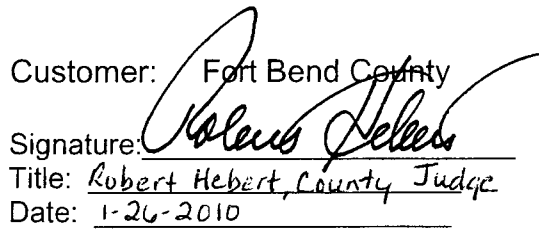 Customer: Fort Bend County
Signature: Robert Hebert
Title: Robert Hebert, County Judge
Date: 1-26-2010